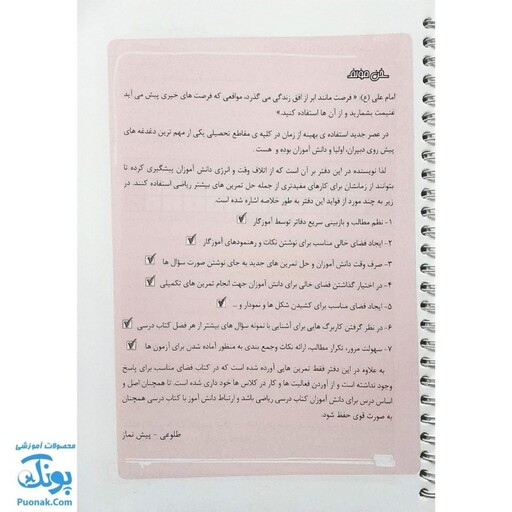 سخن مؤلف
امام علی (ع): « فرصت مانند ابر از افق زندگی می گذرد، مواقعی که فرصت های خیری پیش می آید
غنیمت بشمارید و از آن ها استفاده کنید.»
در عصر جدید استفاده ی بهینه از زمان در کلیه ی مقاطع تحصیلی یکی از مهم ترین دغدغه های
پیش روی دبیران، اولیا و دانش آموزان بوده و هست .
لذا نویسنده در این دفتر بر آن است که از اتلاف وقت و انرژی دانش آموزان پیشگیری کرده تا
بتوانند از زمانشان برای کارهای مفیدتری از جمله حل تمرین های بیشتر ریاضی استفاده کنند. در
زیر به چند مورد از فواید این دفتر به طور خلاصه اشاره شده است.
۱- نظم مطالب و بازبینی سریع دفاتر توسط آموزگار
۲- ایجاد فضای خالی مناسب برای نوشتن نکات و رهنمودهای آموزگار
۳- صرف وقت دانش آموزان و حل تمرین های جدید به جای نوشتن صورت سؤال ها
۴- در اختیار گذاشتن فضای خالی برای دانش آموزان جهت انجام تمرین های تکمیلی
۵- ایجاد فضای مناسب برای کشیدن شکل ها و نمودار و ...
۶- در نظر گرفتن کاربرگ هایی برای آشنایی با نمونه سؤال های بیشتر از هر فصل کتاب درسی
۷- سهولت مرور، تکرار مطالب، ارائه نکات وجمع بندی به منظور آماده شدن برای آزمون ها
به علاوه در این دفتر فقط تمرین هایی آورده شده است که در کتاب فضای مناسب برای پاسخ
وجود نداشته است و از آوردن فعالیت ها و کار در کلاس ها خود داری شده است. تا همچنان اصل و
اساس درس برای دانش آموزان کتاب درسی ریاضی باشد و ارتباط دانش آموز با کتاب درسی همچنان
به صورت قوی حفظ شود.
طلوعی - پیش نماز
محصولات آموزشی
پونک
Puonak.Com